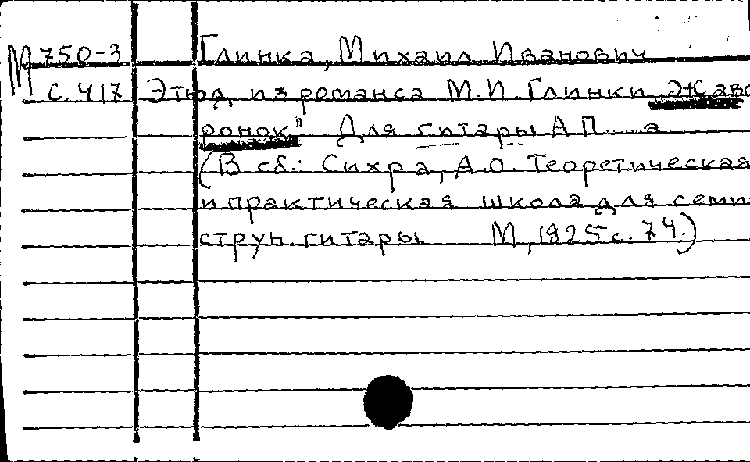 М 750-3 Глинка, Михаил Иванович
с. 417 Этюд из романса М.И. Глинки „Жаво
ронок" Для гитары А.П.
(В сб.: Сихра, А.О. Теоретическая
и практическая школа для семи
струн. гитары М., 1925 с. 74.)